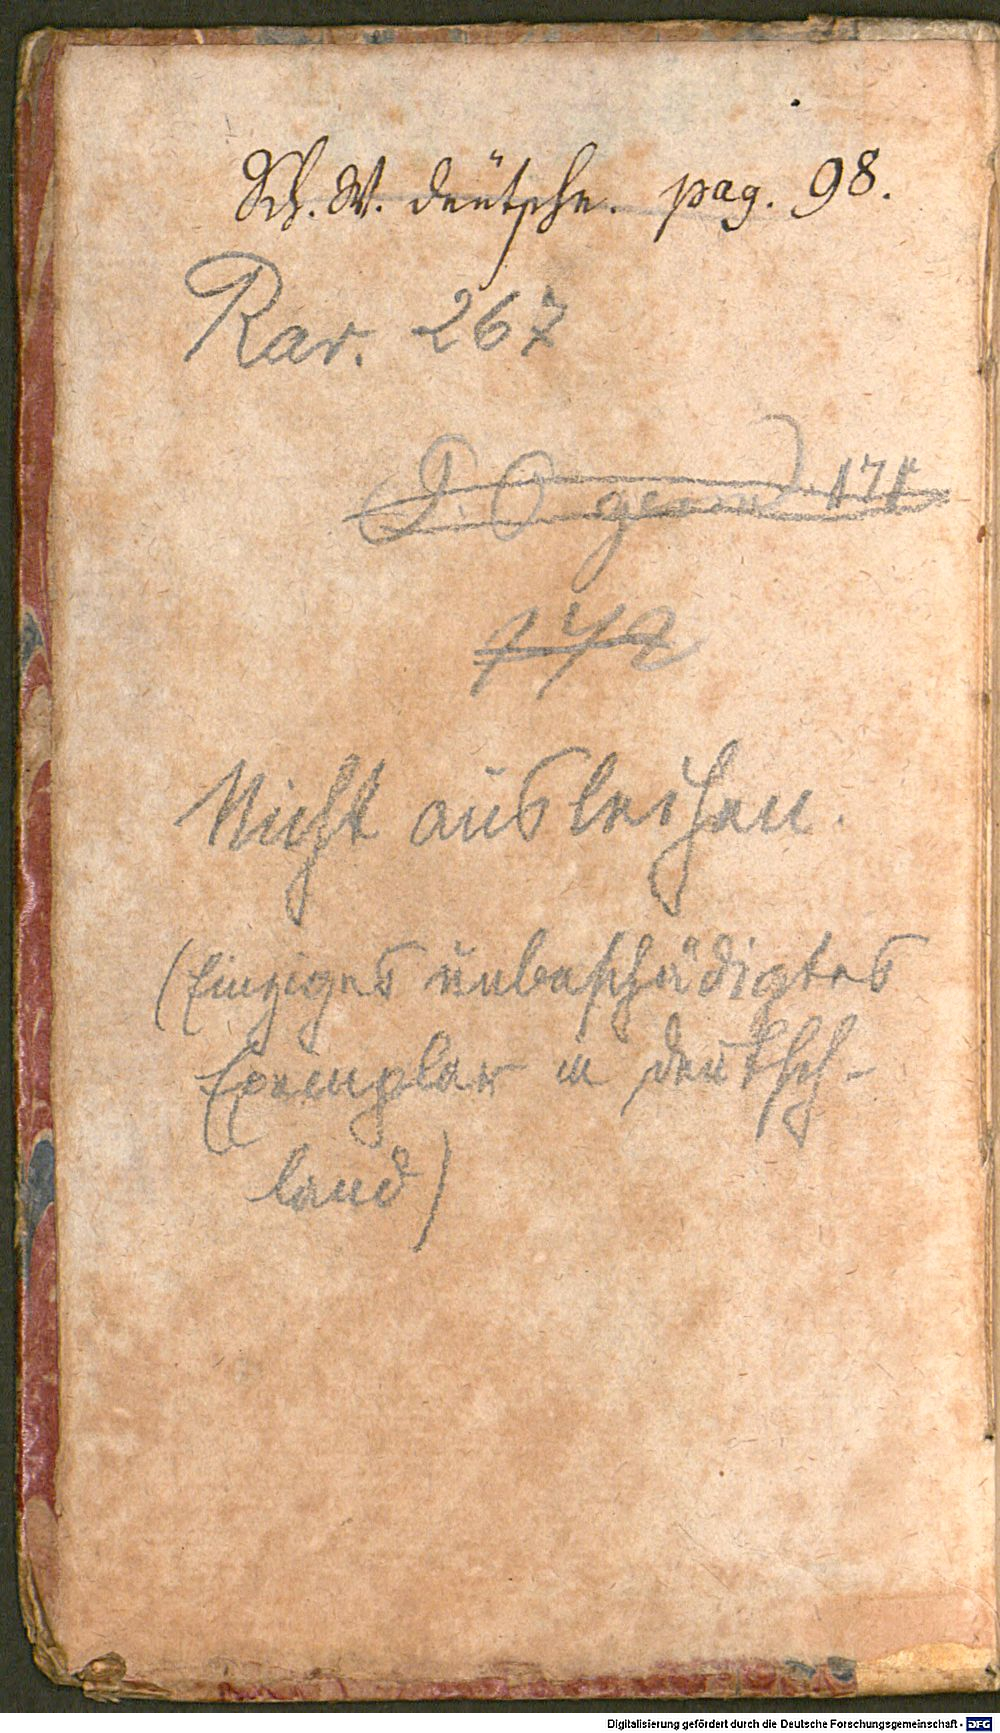 Sch. W. deütsche. pag. 98.
Rar. 267
P. O germ 171
172
Nicht ausleihen.
(Einziges unbeschädigtes
Exemplar in Deutsch-
land)
Digitalisierung gefördert durch die Deutsche Forschungsgemeinschaft - DFG